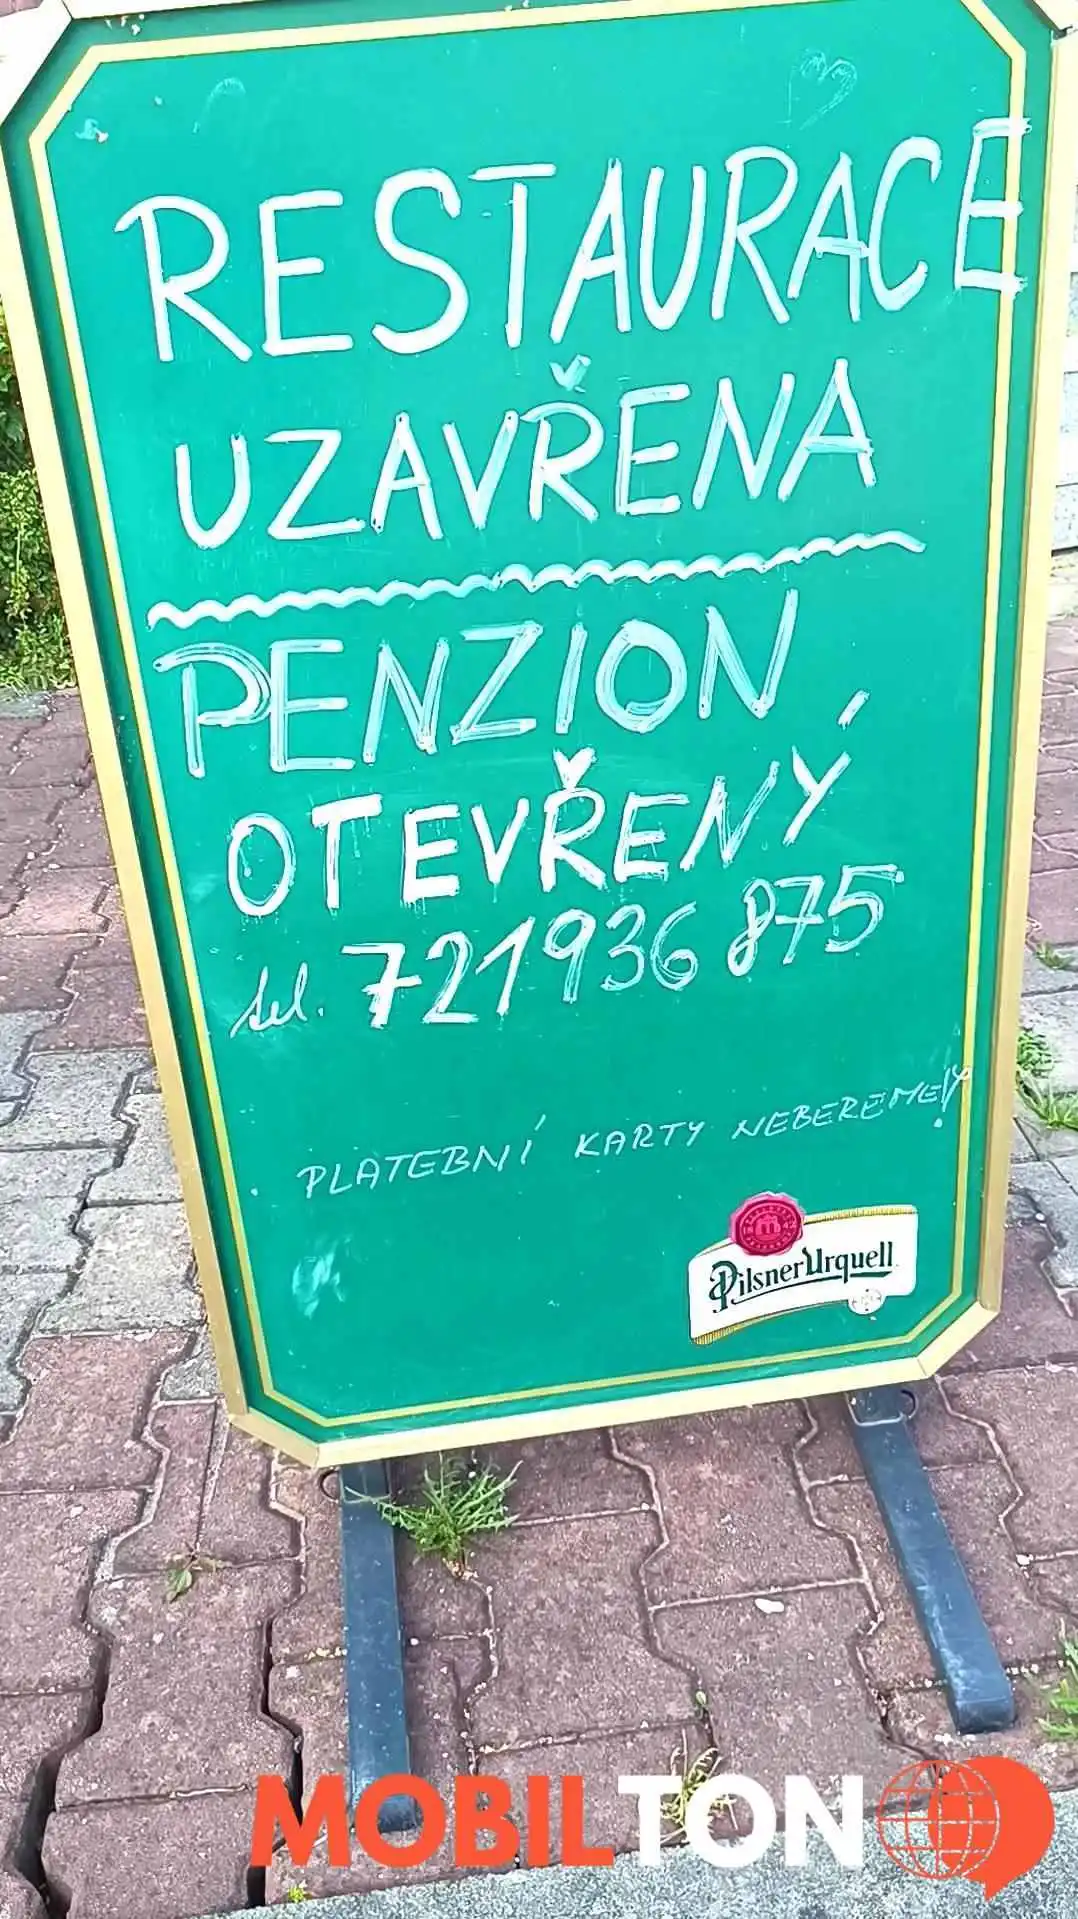 RESTAURACE
UZAVŘENA
PENZION
OTEVŘENÝ
tel. 721 936 875
PLATEBNÍ KARTY NEBEREME!
Pilsner Urquell
MOBILTON